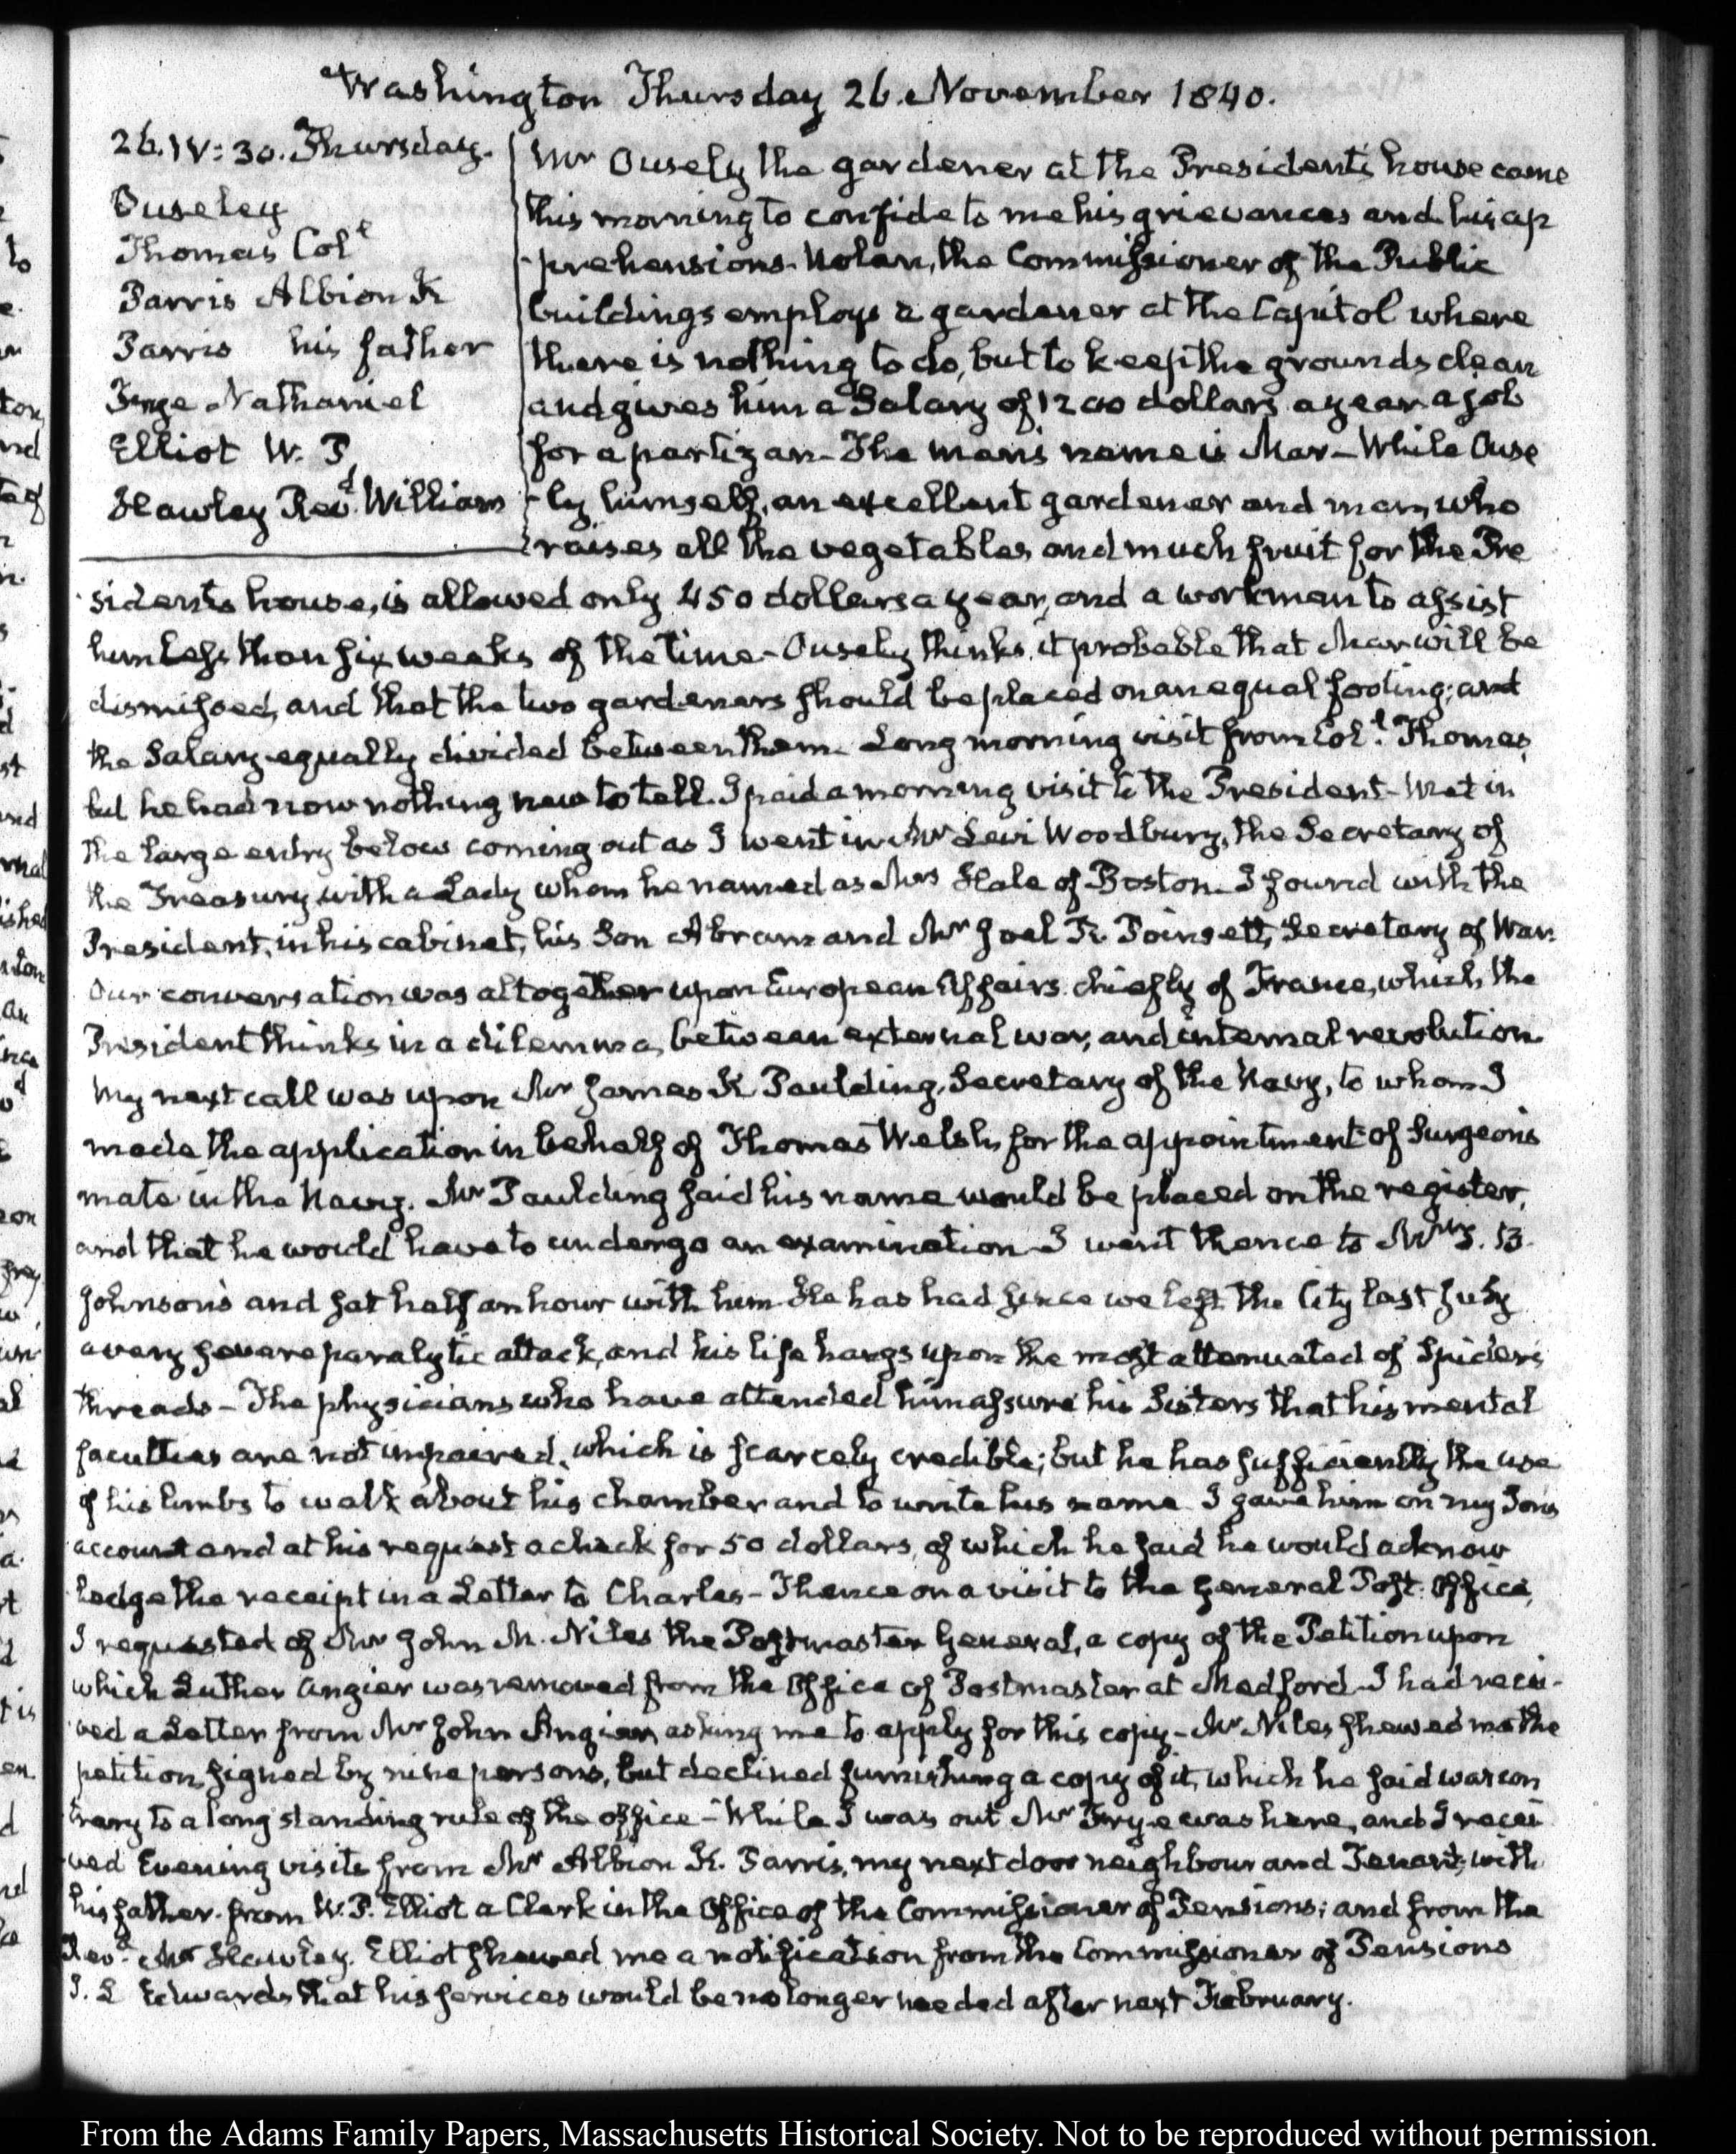 Washington Thursday 26. November 1840.
26. IV: 30. Thursday.
Ouseley
Thomas Col.l
Parris Albion K
Parris his father
Frye Nathaniel
Elliot W. P.
Hawley Rev.d William
Mr Ousely the gardener at the President's house came
this morning to confide to me his grievances and his ap
-prehensions. Nolan, the Commissioner of the Public
buildings employs a gardener at the Capitol where
there is nothing to do, but to keep the grounds clean
and gives him a Salary of 1200 dollars a year a job
for a partizan. The man's name is Mar — While Ouse
-ly himself, an excellent gardener and man, who
raises all the vegetables, and much fruit for the Pre
-sident's house, is allowed only 450 dollars a year, and a workman to assist
him less than six weeks of the time — Ousely thinks it probable that Mar will be
dismissed, and that the two gardeners should be placed on an equal footing; and
the Salary equally divided between them. Long morning visit from Col.l Thomas,
but he had now nothing new to tell. I paid a morning visit to the President — Met in
the large entry below coming out as I went in Mr Levi Woodbury, the Secretary of
the Treasury, with a Lady whom he named as Mrs Hale of Boston. I found with the
President, in his cabinet, his Son Abram and Mr Joel R. Poinsett, Secretary of War.
Our conversation was altogether upon European Affairs chiefly of France, which, the
President thinks in a dilemma, between external war, and internal revolution.
My next call was upon Mr James K Paulding, Secretary of the Navy, to whom I
made the application in behalf of Thomas Welsh, for the appointment of Surgeon's
mate in the Navy. Mr Paulding said his name would be placed on the register,
and that he would have to undergo an examination I went thence to Mr T. B.
Johnson's and sat half an hour with him. He has had since we left the City last July
a very severe paralytic attack, and his life hangs upon the most attenuated of Spider's
threads — The physicians who have attended him assure his Sisters that his mental
faculties are not impaired, which is scarcely credible; but he has sufficiently the use
of his limbs to walk about his chamber and to write his name. I gave him on my Son's
account and at his request a check for 50 dollars, of which he said he would acknow
-ledge the receipt in a Letter to Charles — Thence on a visit to the General Post-Office,
I requested of Mr John M. Niles the Postmaster General, a copy of the Petition upon
which Luther Angier was removed from the Office of Postmaster at Medford. I had recei-
-ved a Letter from Mr John Angier asking me to apply for this copy — Mr Niles shewed me the
petition, signed by nine persons, but declined furnishing a copy of it, which he said was con
-trary to a long standing rule of the office — While I was out Mr Frye was here, and I recei
-ved Evening visits from Mr Albion K. Parris, my next door neighbour and Tenant, with
his father. from W. P. Elliot a Clerk in the Office of the Commissioner of Pensions; and from the
Rev.d Mr Hawley. Elliot shewed me a notification from the Commissioner of Pensions
J. L Edwards that his services would be no longer needed after next February.
From the Adams Family Papers, Massachusetts Historical Society. Not to be reproduced without permission.